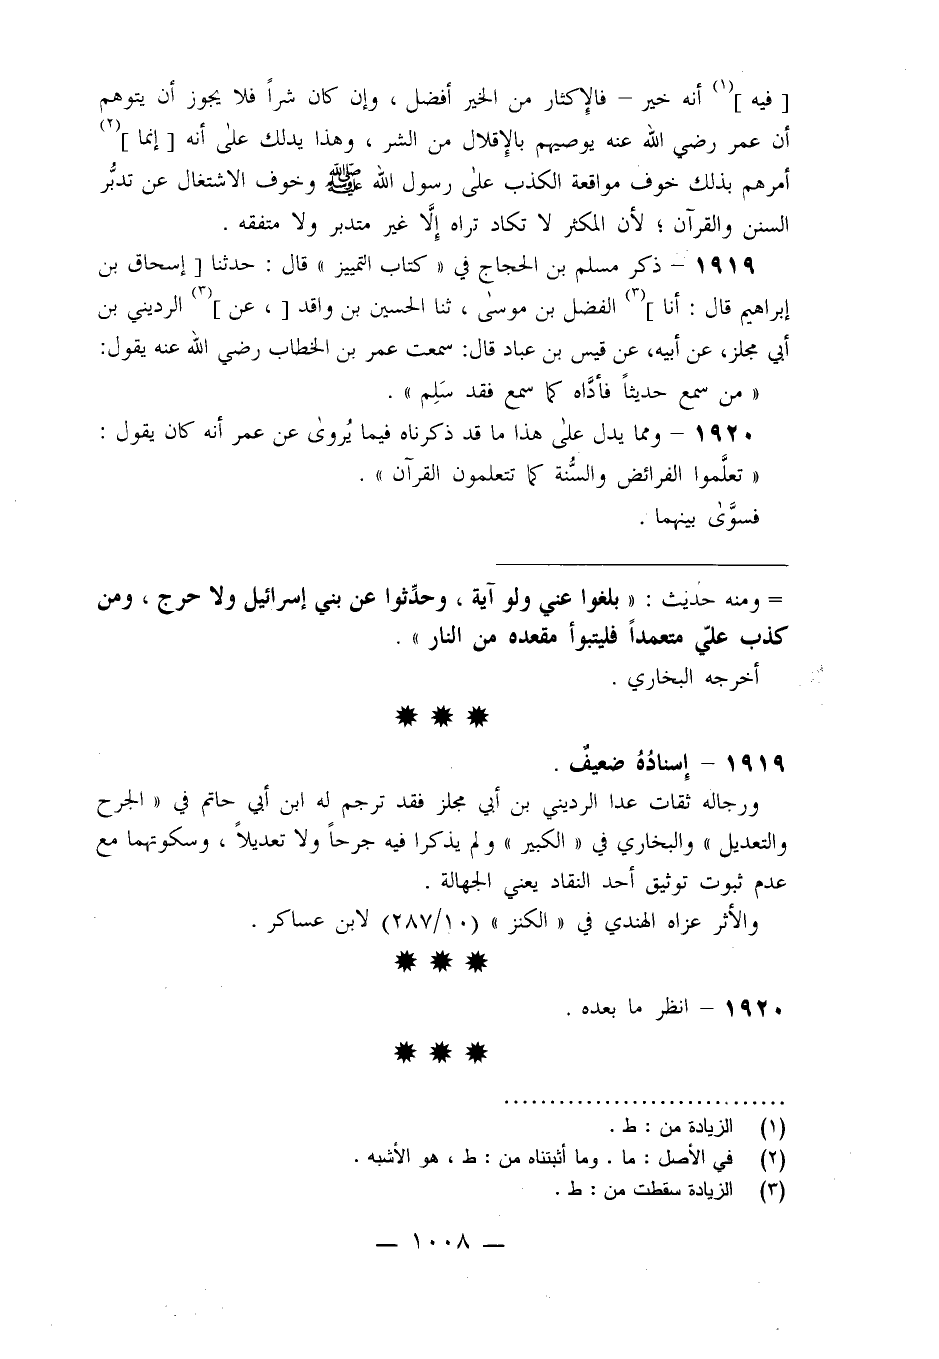 [ فيه ](١) أنه خير – فالإكثار من الخير أفضل ، وإن كان شراً فلا يجوز أن يتوهم
أن عمر رضي الله عنه يوصيهم بالإقلال من الشر ، وهذا يدلك علىٰ أنه [ إنما ](٢)
أمرهم بذلك خوف مواقعة الكذب علىٰ رسول الله ﷺ وخوف الاشتغال عن تدبُّر
السنن والقرآن ؛ لأن المكثر لا تكاد تراه إلَّا غير متدبر ولا متفقه .
١٩١٩ – ذكر مسلم بن الحجاج في « كتاب التمييز » قال : حدثنا [ إسحاق بن
إبراهيم قال : أنا ](٣) الفضل بن موسىٰ ، ثنا الحسين بن واقد [ ، عن ](٣) الرديني بن
أبي مجلز، عن أبيه، عن قيس بن عباد قال: سمعت عمر بن الخطاب رضي الله عنه يقول:
« من سمع حديثاً فأدَّاه كما سمع فقد سَلِم » .
١٩٢٠ – ومما يدل علىٰ هذا ما قد ذكرناه فيما يُروىٰ عن عمر أنه كان يقول :
« تعلَّموا الفرائض والسُّنة كما تتعلمون القرآن » .
فسوَّىٰ بينهما .
= ومنه حديث : « بلغوا عني ولو آية ، وحدِّثوا عن بني إسرائيل ولا حرج ، ومن
كذب عليّ متعمداً فليتبوأ مقعده من النار » .
أخرجه البخاري .
١٩١٩ – إسنادُهُ ضعيفٌ .
ورجاله ثقات عدا الرديني بن أبي مجلز فقد ترجم له ابن أبي حاتم في « الجرح
والتعديل » والبخاري في « الكبير » ولم يذكرا فيه جرحاً ولا تعديلاً ، وسكوتهما مع
عدم ثبوت توثيق أحد النقاد يعني الجهالة .
والأثر عزاه الهندي في « الكنز » (٢٨٧/١٠) لابن عساكر .
١٩٢٠ – انظر ما بعده .
(١) الزيادة من : ط .
(٢) في الأصل : ما . وما أثبتناه من : ط ، هو الأشبه .
(٣) الزيادة سقطت من : ط .
— ١٠٠٨ —